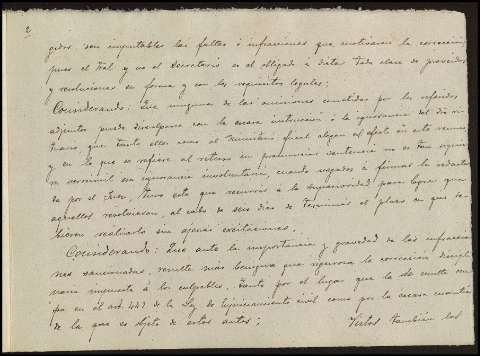 2
gidos, son imputables las faltas é infracciones que motivaron la corrección,
pues el Fral y no el Secretario es el obligado á dictar toda clase de proveidos
y resoluciones en forma y con los requisitos legales;
Considerando: Que ninguna de las omisiones cometidas por los referidos
adjuntos puede disculparse con la escasa instrucción ó la ignorancia del
que tanto ellos como el Ministerio fiscal alegan al efecto en este
y en lo que se refiere al retraso en pronunciar sentencia no es
ni verosimil esa ignorancia involuntaria, cuando negados á firmar la redacta
da por el Juez, tuvo este que recurrir á la superioridad para lograr que
aquellos resolvieran, al cabo de seis dias de terminar el plazo en que de
bieron realizarlo sin ajenas excitaciones.
Considerando: Que ante la importancia y gravedad de las infraccio
nes sancionadas, resulta mas benigna que rigurosa la corrección discipli
naria impuesta á los culpables, tanto por el lugar que la de multa ocu
pa en el art. 449 de la Ley de Enjuiciamiento civil como por la escasa cuantia
de la que es objeto de estos autos;
Vistos tambien los